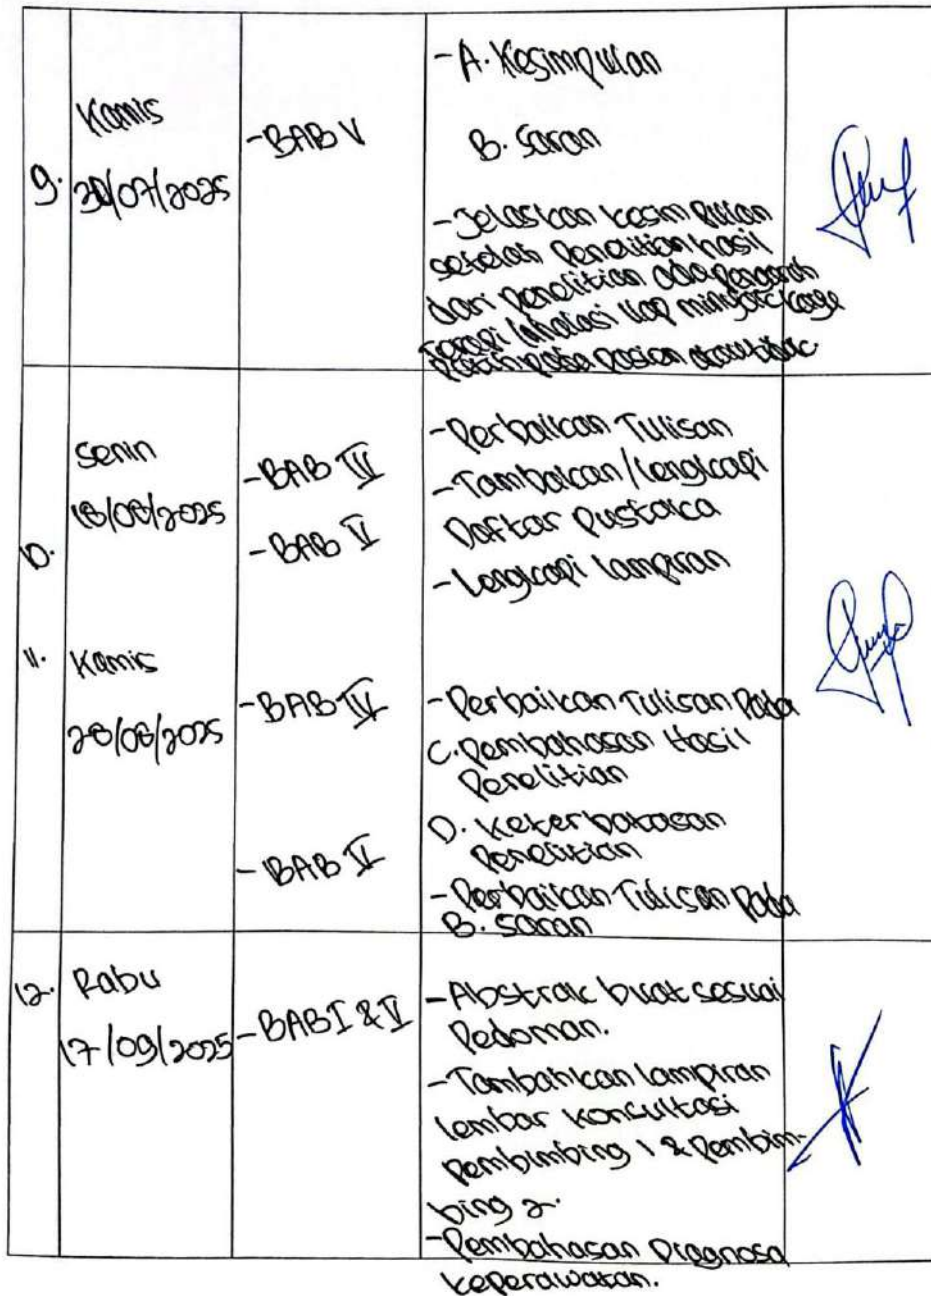 9.
Kamis
/07/2025
-BAB V
-A. Kesimpulan
B. Saran
-Jelaskan kesimpulan
setelah Penelitian hasil
dari penelitian ada pengaruh
terapi inhalasi uap minyak kayu
pada pasien atau tidak.
10.
Senin
18/08/2025
-BAB IV
-BAB V
-Perbaikan Tulisan
-Tambakan/lengkapi
Daftar Pustaka
-Lengkapi lampiran
11.
Kamis
28/08/2025
-BAB IV
-BAB V
-Perbaikan Tulisan Pada
C. Pembahasan Hasil
Penelitian
D. Keterbatasan
Penelitian
-Perbaikan Tulisan pada
B. Saran
12.
Rabu
17/09/2025
-BAB I & V
-Abstrak buat sesuai
Pedoman.
-Tambahkan lampiran
lembar konsultasi
Pembimbing 1 & Pembim-
bing 2.
-Pembahasan Diagnosa
keperawatan.